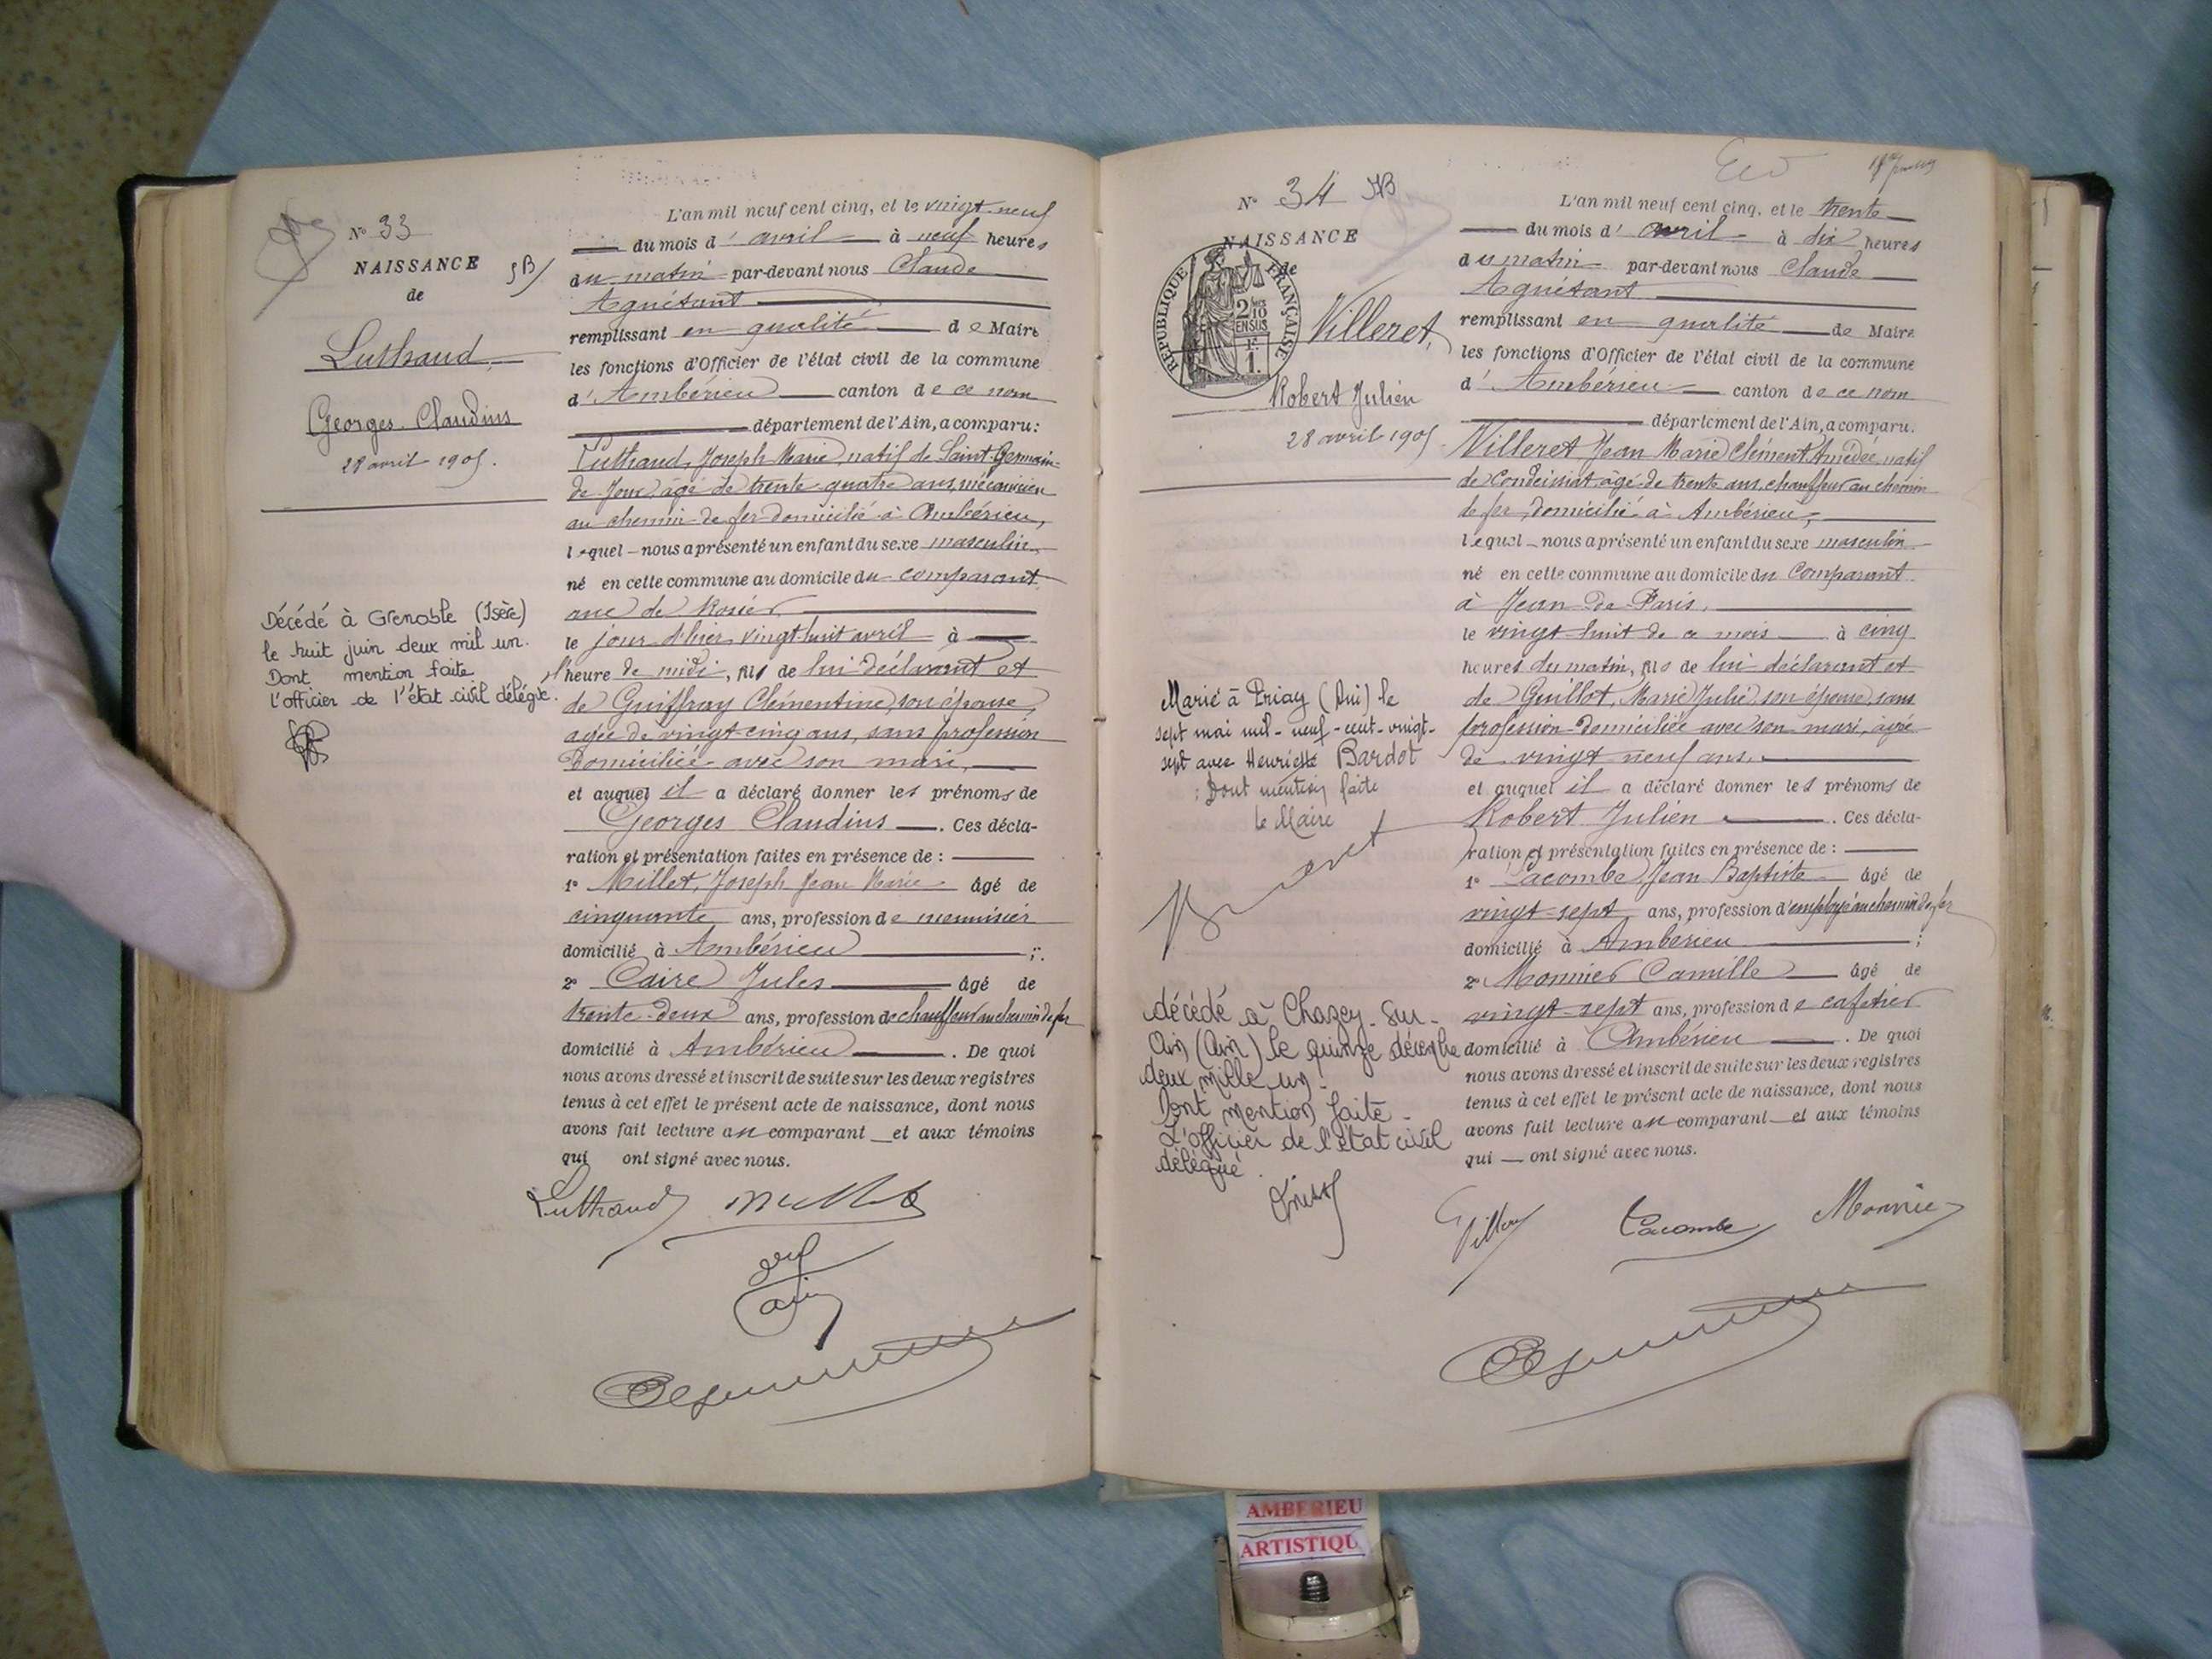 N° 33
NAISSANCE
de
Luthaud,
Georges Claudius
28 avril 1905.
Décédé à Grenoble (Isère)
le huit juin deux mil un.
Dont mention faite
l'officier de l'état civil délégué.
L'an mil neuf cent cinq, et le vingt-neuf
du mois d'avril à neuf heures
du matin par-devant nous Claude
Aguétant
remplissant en qualité de Maire
les fonctions d'Officier de l'état civil de la commune
d'Ambérieu canton de ce nom
département de l'Ain, a comparu:
Luthaud, Joseph Marie, natif de Saint-Germain-
de-Joux, âgé de trente quatre ans, mécanicien
au chemin de fer domicilié à Ambérieu,
lequel nous a présenté un enfant du sexe masculin
né en cette commune au domicile du comparant
rue de Rosier
le jour d'hier vingt-huit avril à
l'heure de midi, fils de lui déclarant et
de Guiffray Clémentine, son épouse,
agée de vingt cinq ans, sans profession
domiciliée avec son mari,
et auquel il a déclaré donner les prénoms de
Georges Claudius . Ces décla-
ration et présentation faites en présence de :
1° Millet, Joseph Jean Marie âgé de
cinquante ans, profession de menuisier
domicilié à Ambérieu ;
2° Caire Jules âgé de
trente-deux ans, profession de chauffeur au chemin de fer
domicilié à Ambérieu . De quoi
nous avons dressé et inscrit de suite sur les deux registres
tenus à cet effet le présent acte de naissance, dont nous
avons fait lecture au comparant et aux témoins
qui ont signé avec nous.
Luthaud Millet
N° 34
NAISSANCE
de
RÉPUBLIQUE FRANÇAISE
2/10
EN SUS
1F.
Villeret,
Robert Julien
28 avril 1905
Marié à Priay (Ain) le
sept mai mil-neuf-cent-vingt-
sept avec Henriette Bardot
: Dont mention faite
Le Maire
décédé à Chazey-sur-
Ain (Ain) le quinze décembre
deux mille un.
Dont mention faite.
L'officier de l'état civil
délégué.
L'an mil neuf cent cinq, et le trente
du mois d'avril à dix heures
du matin par-devant nous Claude
Aguétant
remplissant en qualité de Maire
les fonctions d'Officier de l'état civil de la commune
d'Ambérieu canton de ce nom
département de l'Ain, a comparu.
Villeret Jean Marie Clément Amédée, natif
de Condeissiat, âgé de trente ans, chauffeur au chemin
de fer, domicilié à Ambérieu,
lequel nous a présenté un enfant du sexe masculin
né en cette commune au domicile du comparant
à Jean de Paris,
le vingt huit de ce mois à cinq
heures du matin, fils de lui déclarant et
de Guillot, Marie Julie, son épouse, sans
profession domiciliée avec son mari, agée
de vingt neuf ans,
et auquel il a déclaré donner les prénoms de
Robert Julien . Ces décla-
ration et présentation faites en présence de :
1° Lacombe, Jean Baptiste âgé de
vingt-sept ans, profession d'employé au chemin de fer
domicilié à Ambérieu ;
2° Monnier Camille âgé de
vingt-sept ans, profession de cafetier
domicilié à Ambérieu . De quoi
nous avons dressé et inscrit de suite sur les deux registres
tenus à cet effet le présent acte de naissance, dont nous
avons fait lecture au comparant et aux témoins
qui ont signé avec nous.
Lacombe Monnier
AMBERIEU
ARTISTIQU